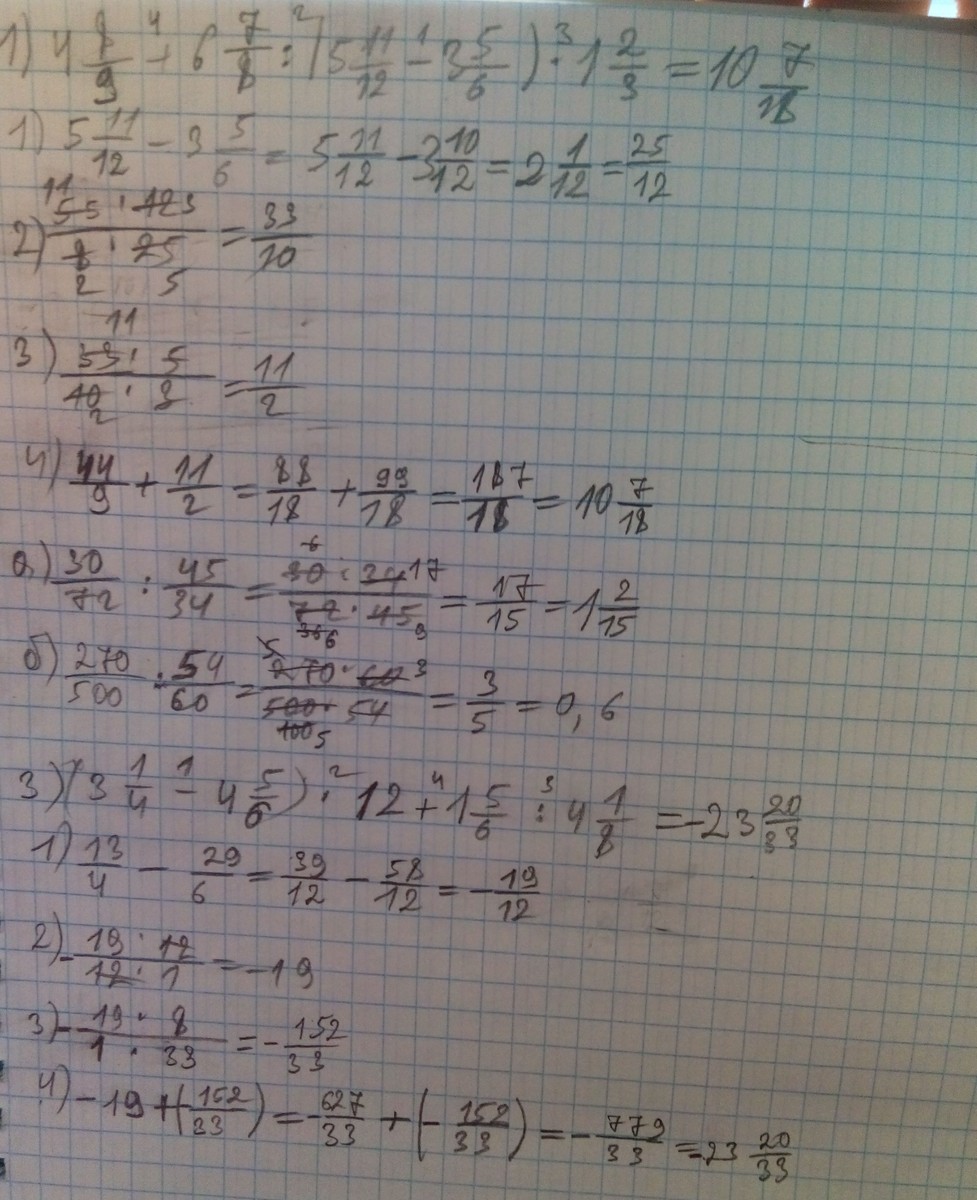 1) 4 8/9 +⁴ 6 7/8 :² (5 11/12 -¹ 3 5/6) ·³ 1 2/3 = 10 7/18
1) 5 11/12 - 3 5/6 = 5 11/12 - 3 10/12 = 2 1/12 = 25/12
2) 55 · 12 / 8 · 25 = 33/10 (11, 3, 2, 5)
3) 33 · 5 / 10 · 3 = 11/2 (11, 2)
4) 44/9 + 11/2 = 88/18 + 99/18 = 187/18 = 10 7/18
а) 30/72 : 45/34 = 30 · 34 / 72 · 45 = 17/15 = 1 2/15 (6, 17, 36, 6, 9)
б) 270/500 : 54/60 = 270 · 60 / 500 · 54 = 3/5 = 0,6 (5, 3, 100, 5)
3) (3 1/4 -¹ 4 5/6) ·² 12 +⁴ 1 5/6 :³ 4 1/8 = -23 20/33
1) 13/4 - 29/6 = 39/12 - 58/12 = -19/12
2) - 19 · 12 / 12 · 1 = -19
3) - 19 · 8 / 1 · 33 = - 152/33
4) -19 + (-152/33) = -627/33 + (- 152/33) = - 779/33 = -23 20/33